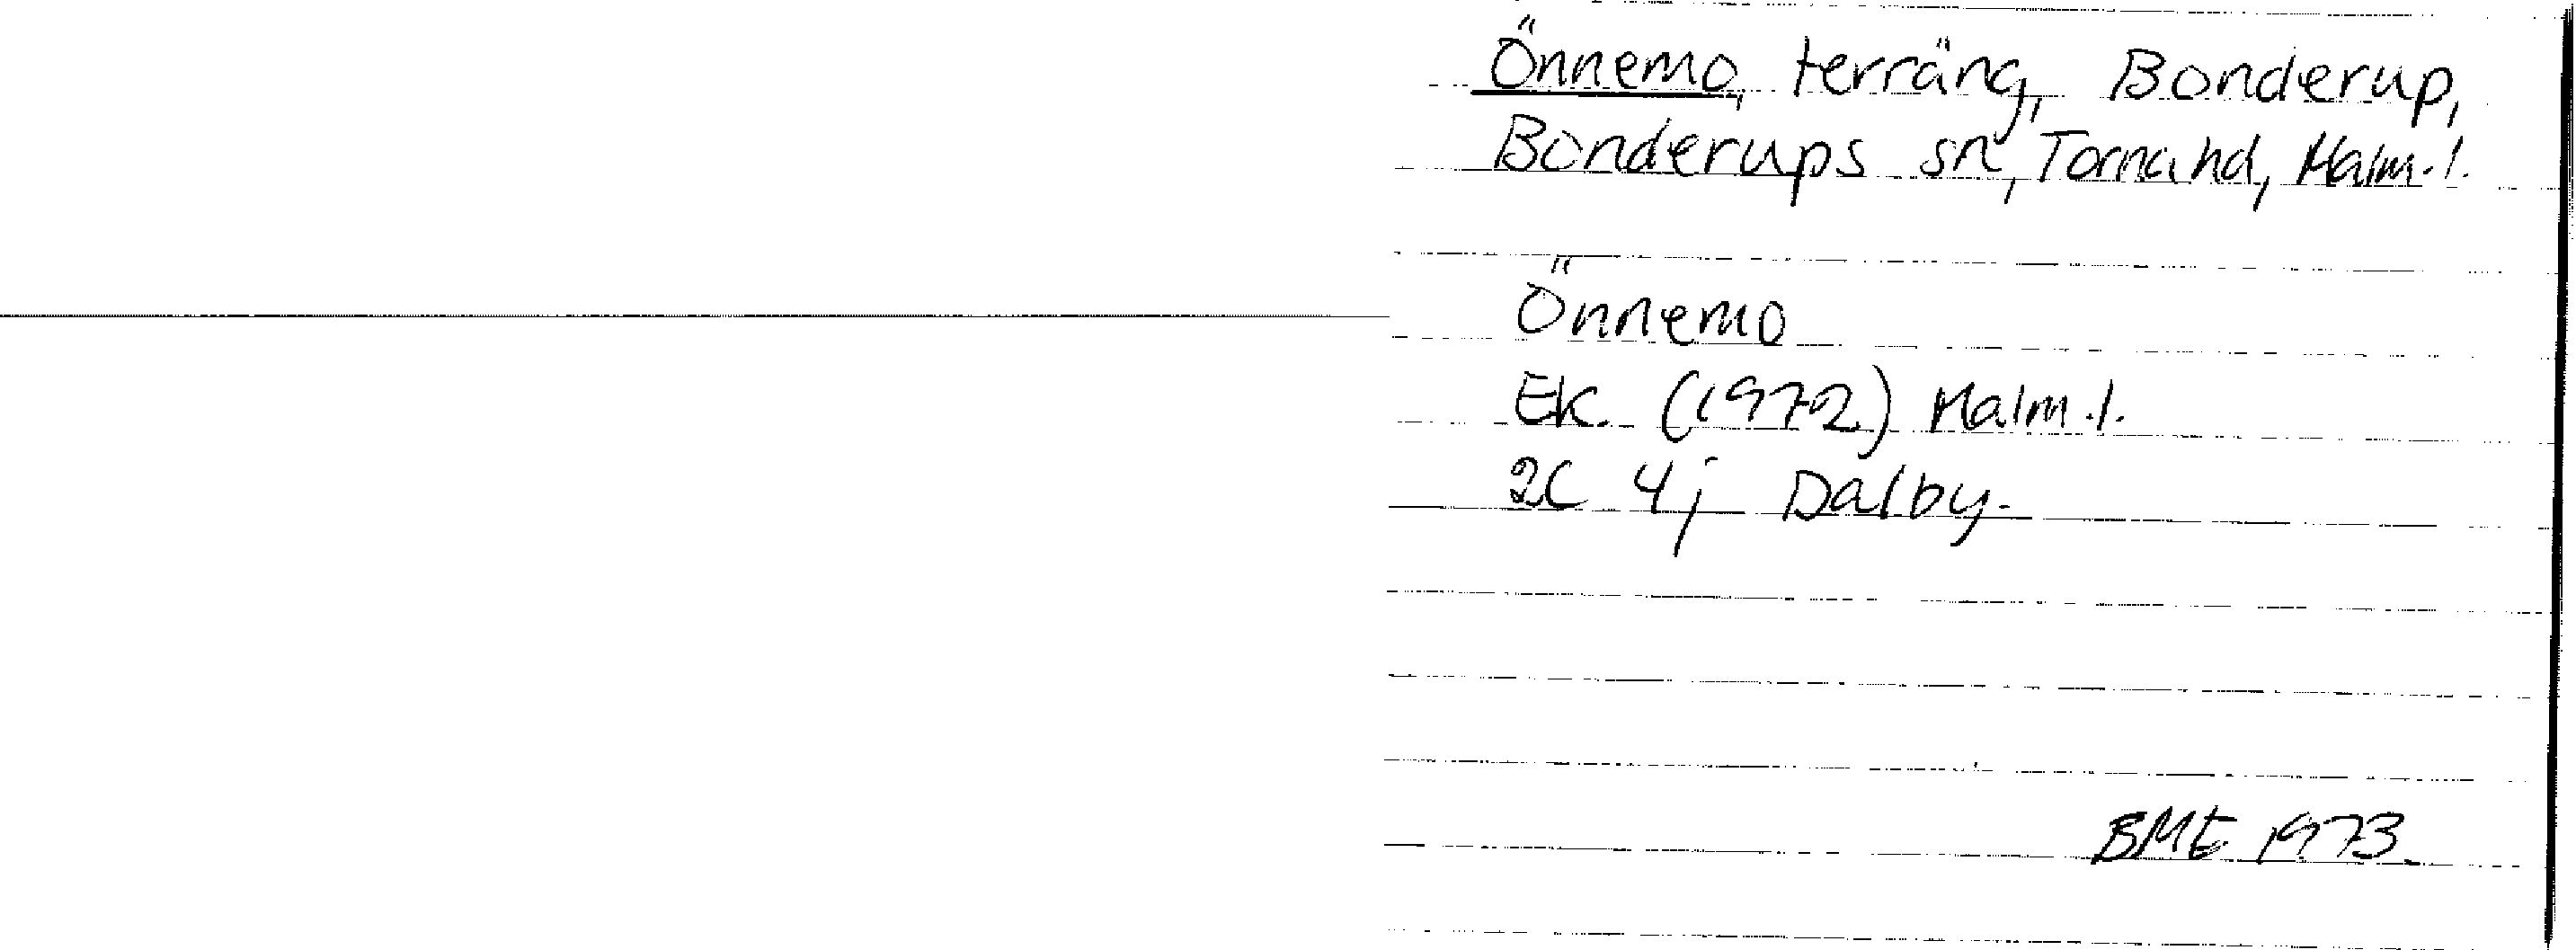 Önnemo, terräng, Bonderup,
Bonderups sn, Torna hd, Malm.l.
Önnemo
Ek. (1972) Malm.l.
2C 4j Dalby.
BME 1973.